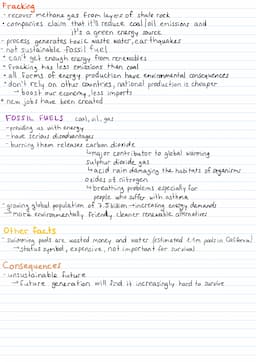 Fracking
- recover methane gas from layers of shale rock
• companies claim that it's reduce coal/oil emissions and
it's a green energy source
- process generates toxic waste water, earthquakes
- not sustainable fossil fuel
• can't get enough energy from renewables
• fracking has less emissions than coal
• all forms of energy production have environmental consequences
• don't rely on other countries, national production is cheaper
→ boost our economy, less imports
• new jobs have been created
FOSSIL FUELS coal, oil, gas
- providing us with energy
- have serious disadvantages
- burning them releases carbon dioxide
↳ major contributor to global warming
sulphur dioxide gas
↳ acid rain damaging the habitats of organisms
oxides of nitrogen
↳ breathing problems especially for
people who suffer with asthma
- growing global population of 7.5 billion → increasing energy demands
→ more environmentally friendly, cleaner renewable alternatives
Other facts
- swimming pools are wasted money and water (estimated 1.1m pools in California)
→ status symbol, expensive, not important for survival
Consequences
- unsustainable future
→ future generation will find it increasingly hard to survive